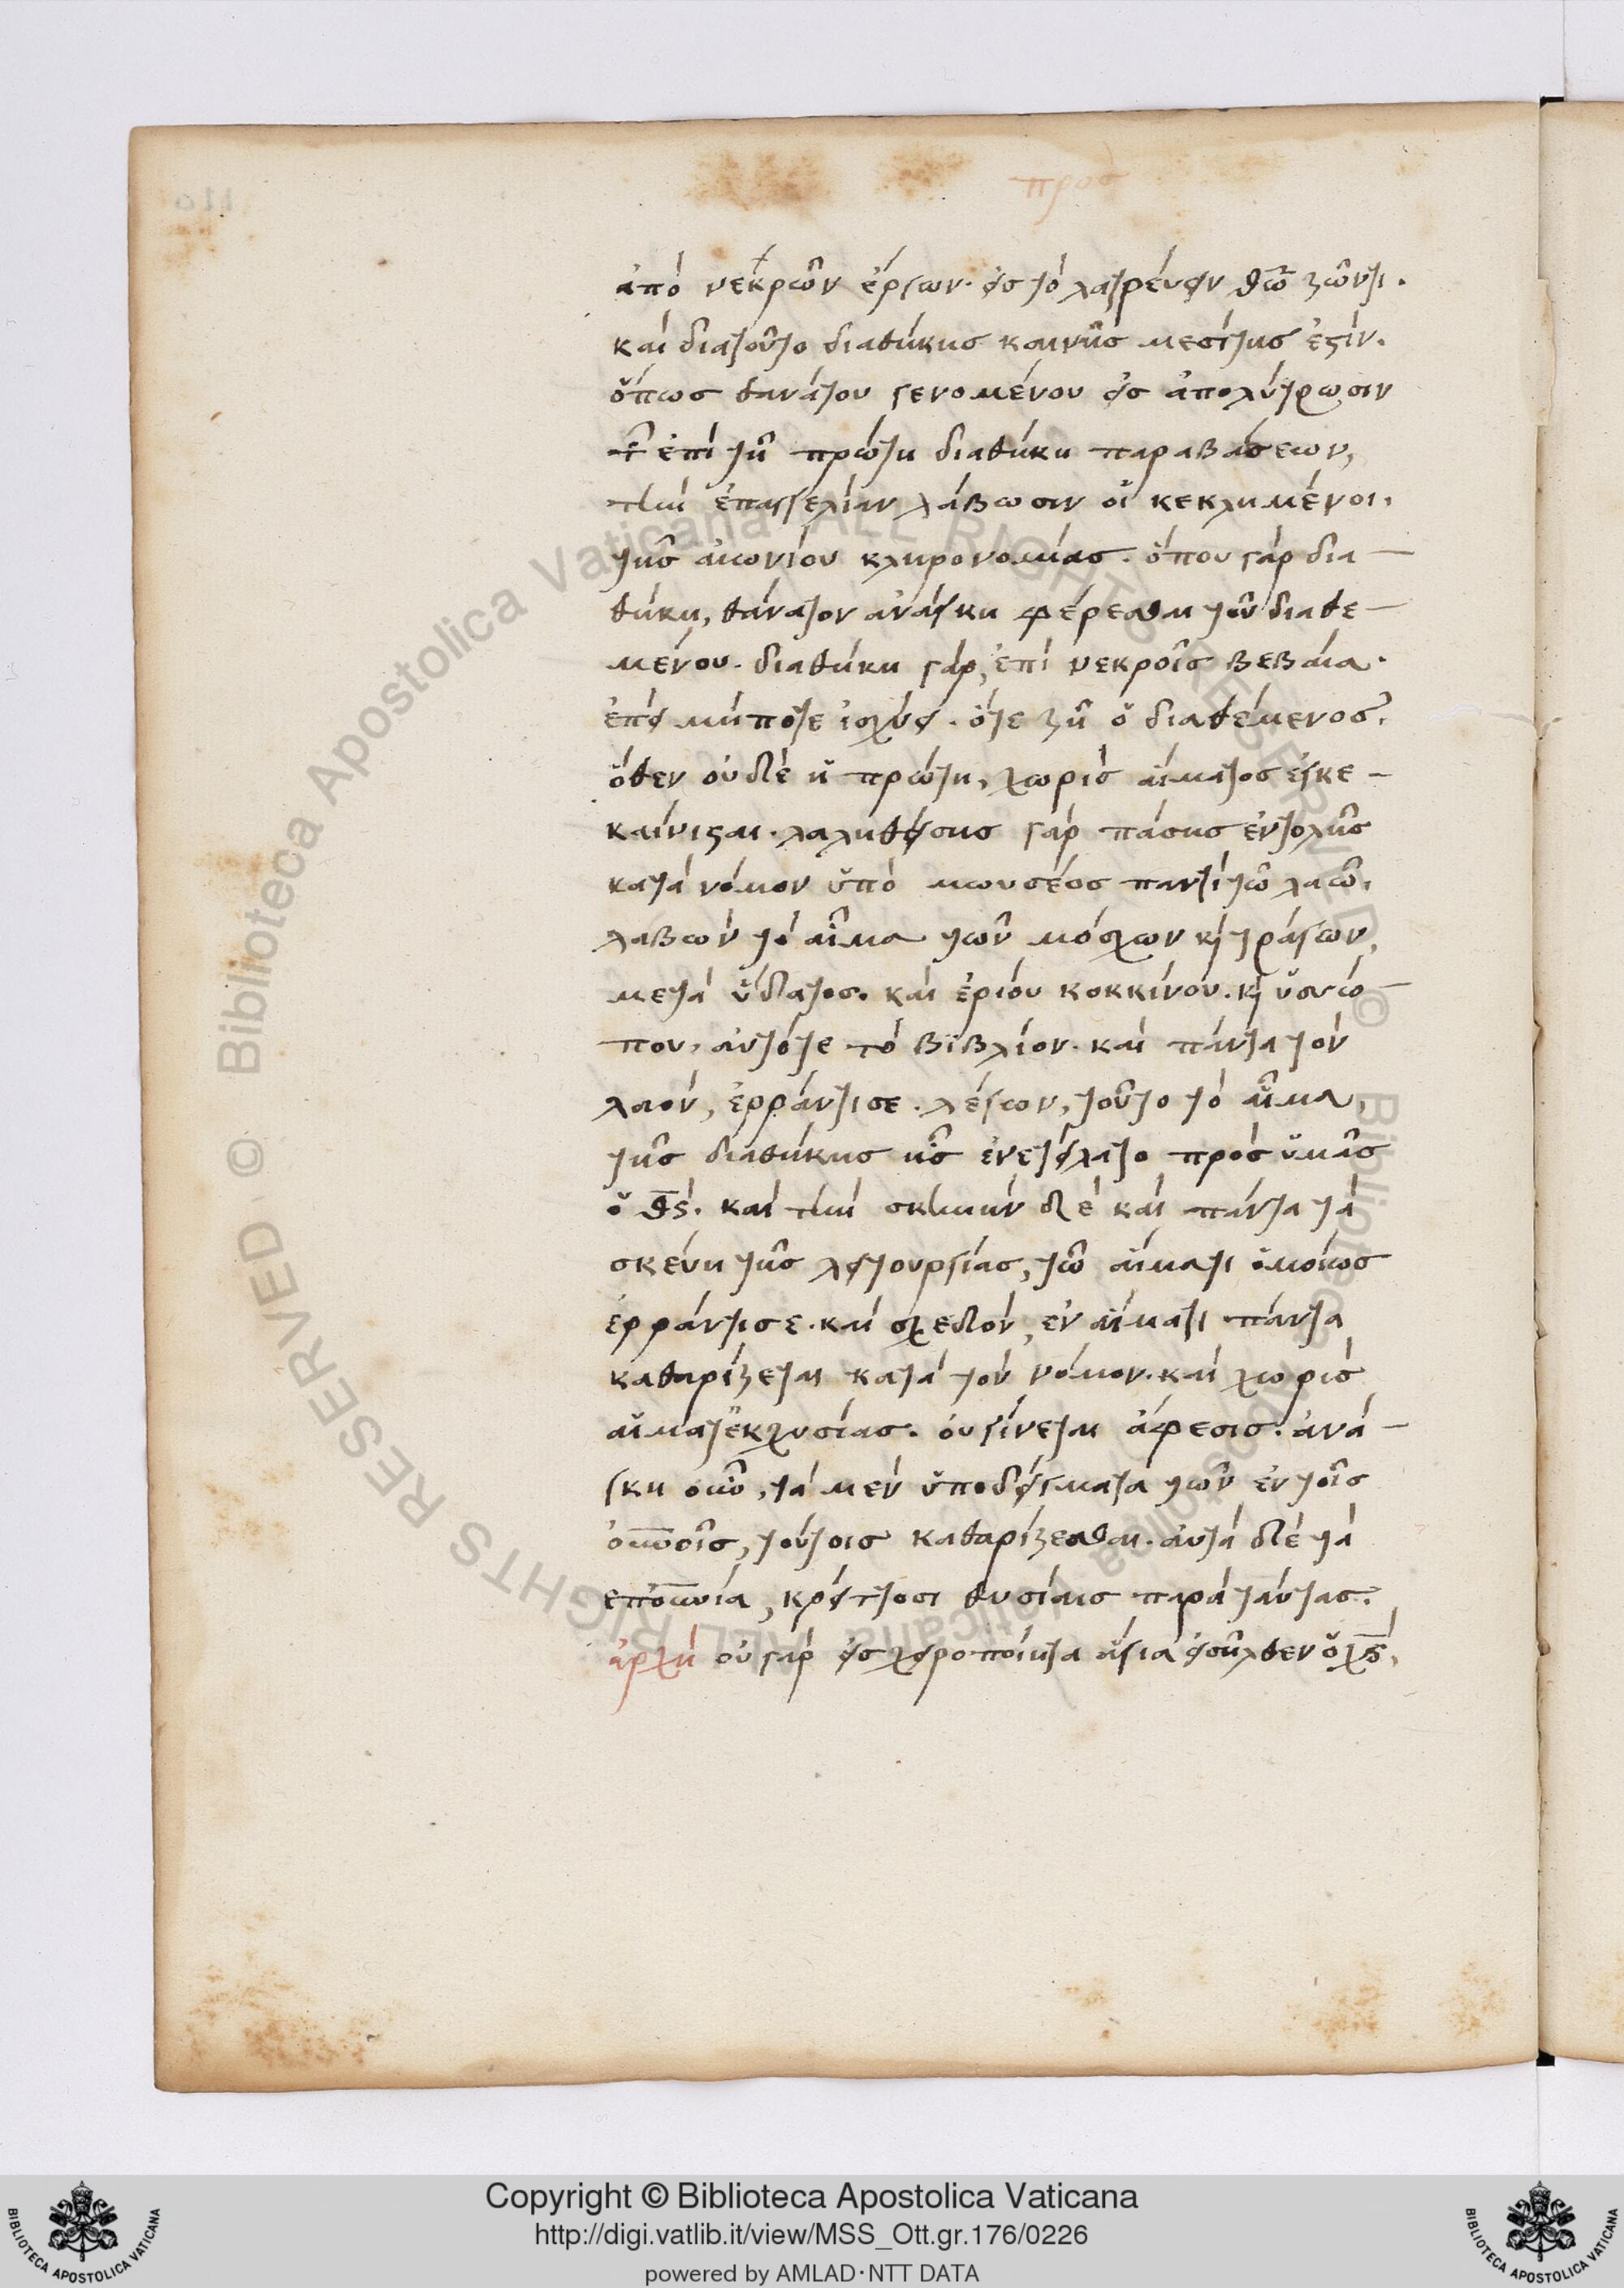 προσ
ἀπὸ νεκρῶν ἔργων· εἰς τὸ λατρεύειν θω ζῶντι.
καὶ διατοῦτο διαθήκης καινῆς μεσίτης ἐστίν.
ὅπως θανάτου γενομένου εἰς ἀπολύτρωσιν
τῶν ἐπὶ τῇ πρώτῃ διαθήκῃ παραβάσεων,
τὴν ἐπαγγελίαν λάβωσιν οἱ κεκλημένοι.
τῆς αἰωνίου κληρονομίας. ὅπου γὰρ δια-
θήκη, θάνατον ἀνάγκη φέρεσθαι τοῦ διαθε-
μένου. διαθήκη γὰρ, ἐπὶ νεκροῖς βεβαία.
ἐπεὶ μήποτε ἰσχύει. ὅτε ζῇ ὁ διαθέμενος.
ὅθεν οὐδὲ ἡ πρώτη, χωρὶς αἵματος ἐγκε-
καίνισται. λαληθείσης γὰρ πάσης ἐντολῆς
κατὰ νόμον ὑπὸ μωυσέος παντὶ τῷ λαῷ.
λαβὼν τὸ αἷμα τῶν μόσχων κ τράγων,
μετὰ ὕδατος. καὶ ἐρίου κοκκίνου. κ ὑσώ-
που, αὐτότε τὸ βιβλίον. καὶ πάντα τὸν
λαὸν, ἐρράντισε. λέγων, τοῦτο τὸ αἷμα,
τῆς διαθήκης ἧς ἐνετείλατο πρὸς ὑμᾶς
ὁ θς. καὶ τὴν σκηνὴν δὲ καὶ πάντα τὰ
σκεύη τῆς λειτουργίας, τῷ αἵματι ὁμοίως
ἐρράντισε. καὶ σχεδὸν, ἐν αἵματι πάντα
καθαρίζεται κατὰ τὸν νόμον. καὶ χωρὶς
αἱματεκχυσίας. οὐ γίνεται ἄφεσις. ἀνά-
γκη οὖν, τὰ μὲν ὑποδείγματα τῶν ἐν τοῖς
οὐνοῖς, τούτοις καθαρίζεσθαι. αὐτὰ δὲ τὰ
ἐπουνία, κρείττοσι θυσίαις παρὰ ταύτας.
ἀρχὴ οὐ γὰρ εἰς χειροποίητα ἅγια εἰσῆλθεν ὁ χς,
Copyright © Biblioteca Apostolica Vaticana
http://digi.vatlib.it/view/MSS_Ott.gr.176/0226
powered by AMLAD·NTT DATA
BIBLIOTECA APOSTOLICA VATICANA
BIBLIOTECA APOSTOLICA VATICANA
© Biblioteca Apostolica Vaticana ALL RIGHTS RESERVED
© Biblioteca Apostolica Vaticana ALL RIGHTS RESERVED